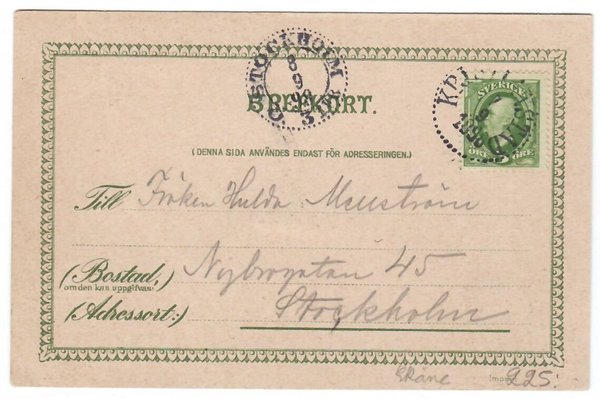 STOCKHOLM
8
9
98
3
BREFKORT.
SVERIGE
KRISTIANSTAD
1898
ÖRE ÖRE
(DENNA SIDA ANVÄNDES ENDAST FÖR ADRESSERINGEN.)
Till Fröken Hulda
(Bostad,) Nybrogatan 45
om den kan uppgifvas
(Adressort:) Stockholm
Skåne 225: